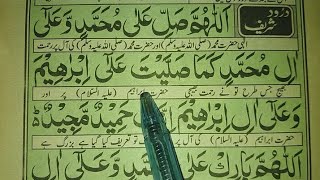 درود شریف
اَللّٰهُمَّ صَلِّ عَلٰى مُحَمَّدٍ وَّعَلٰٓى
الٰہی حضرت محمد (صلی اللہ علیہ وسلم) اور حضرت محمد (صلی اللہ علیہ وسلم) کی آل پر رحمت
اٰلِ مُحَمَّدٍ كَمَا صَلَّيْتَ عَلٰٓى اِبْرَاهِيْمَ
بھیج جس طرح تو نے رحمت بھیجی حضرت ابراہیم (علیہ السلام) پر اور
وَعَلٰٓى اٰلِ اِبْرَاهِيْمَ حَمِيْدٌ مَّجِيْدٌ
حضرت ابراہیم (علیہ السلام) کی آل پر تو تعریف کیا گیا ہے بزرگ ہے
اَللّٰهُمَّ بَارِكْ عَلٰى مُحَمَّدٍ وَّعَلٰٓى اٰلِ